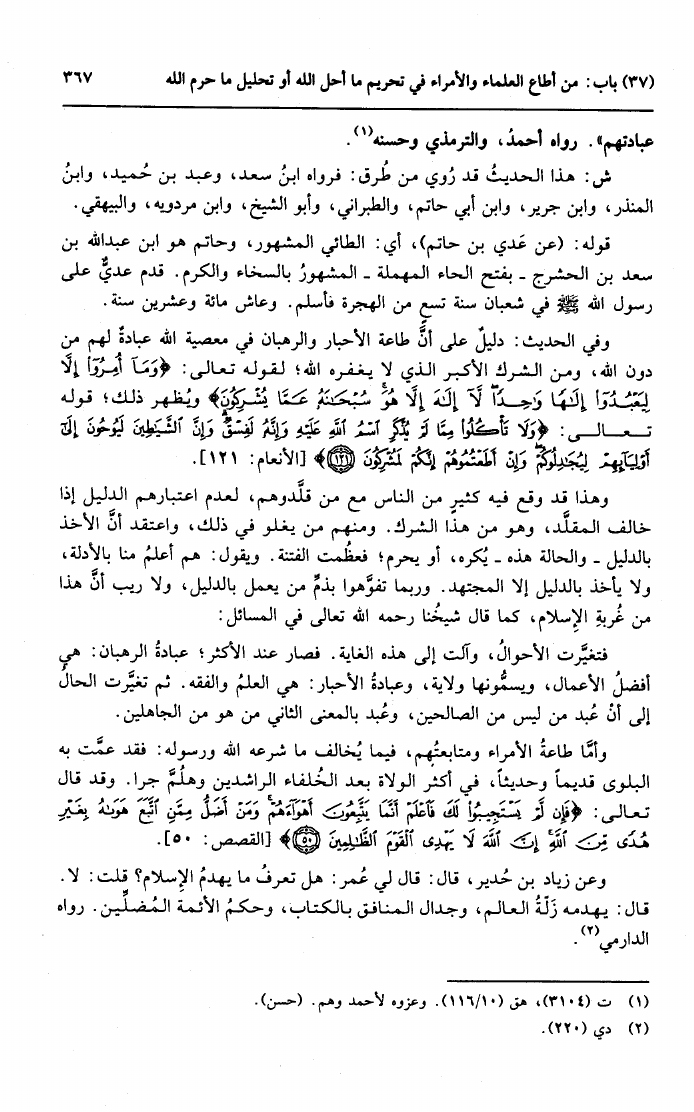 (٣٧) باب: من أطاع العلماء والأمراء في تحريم ما أحل الله أو تحليل ما حرم الله ٣٦٧
عبادتهم». رواه أحمدُ، والترمذي وحسنه(١).
ش: هذا الحديثُ قد رُوي من طُرق: فرواه ابنُ سعد، وعبد بن حُميد، وابنُ
المنذر، وابن جرير، وابن أبي حاتم، والطبراني، وأبو الشيخ، وابن مردويه، والبيهقي.
قوله: (عن عَدي بن حاتم)، أي: الطائي المشهور، وحاتم هو ابن عبدالله بن
سعد بن الحشرج ـ بفتح الحاء المهملة ـ المشهورُ بالسخاء والكرم. قدم عديٌّ على
رسول الله ﷺ في شعبان سنة تسع من الهجرة فأسلم. وعاش مائة وعشرين سنة.
وفي الحديث: دليلٌ على أنَّ طاعة الأحبار والرهبان في معصية الله عبادةٌ لهم من
دون الله، ومن الشرك الأكبر الذي لا يغفره الله؛ لقوله تعالى: ﴿وَمَآ أُمِرُوٓاْ إِلَّا
لِيَعْبُدُوٓاْ إِلَٰهًا وَٰحِدًاۖ لَّآ إِلَٰهَ إِلَّا هُوَۚ سُبْحَٰنَهُۥ عَمَّا يُشْرِكُونَ﴾ ويُظهر ذلك؛ قوله
تعالى: ﴿وَلَا تَأْكُلُواْ مِمَّا لَمْ يُذْكَرِ اسْمُ اللَّهِ عَلَيْهِ وَإِنَّهُۥ لَفِسْقٌۗ وَإِنَّ الشَّيَٰطِينَ لَيُوحُونَ إِلَىٰٓ
أَوْلِيَآئِهِمْ لِيُجَٰدِلُوكُمْۖ وَإِنْ أَطَعْتُمُوهُمْ إِنَّكُمْ لَمُشْرِكُونَ ١٢١﴾ [الأنعام: ١٢١].
وهذا قد وقع فيه كثيرٍ من الناس مع من قلَّدوهم، لعدم اعتبارهم الدليل إذا
خالف المقلَّد، وهو من هذا الشرك. ومنهم من يغلو في ذلك، واعتقد أنَّ الأخذ
بالدليل ـ والحالة هذه ـ يُكره، أو يحرم؛ فعظُمت الفتنة. ويقول: هم أعلمُ منا بالأدلة،
ولا يأخذ بالدليل إلا المجتهد. وربما تفوَّهوا بذمِّ من يعمل بالدليل، ولا ريب أنَّ هذا
من غُربةِ الإسلام، كما قال شيخُنا رحمه الله تعالى في المسائل:
فتغيَّرت الأحوالُ، وآلت إلى هذه الغاية. فصار عند الأكثر؛ عبادةُ الرهبان: هي
أفضلُ الأعمال، ويسمُّونها ولاية، وعبادةُ الأحبار: هي العلمُ والفقه. ثم تغيَّرت الحالُ
إلى أنْ عُبد من ليس من الصالحين، وعُبد بالمعنى الثاني من هو من الجاهلين.
وأمَّا طاعةُ الأمراء ومتابعتُهم، فيما يُخالف ما شرعه الله ورسوله: فقد عمَّت به
البلوى قديماً وحديثاً، في أكثر الولاة بعد الخُلفاء الراشدين وهلُمَّ جرا. وقد قال
تعالى: ﴿فَإِن لَّمْ يَسْتَجِيبُواْ لَكَ فَاعْلَمْ أَنَّمَا يَتَّبِعُونَ أَهْوَآءَهُمْۚ وَمَنْ أَضَلُّ مِمَّنِ اتَّبَعَ هَوَىٰهُ بِغَيْرِ
هُدًى مِّنَ اللَّهِۚ إِنَّ اللَّهَ لَا يَهْدِي الْقَوْمَ الظَّٰلِمِينَ ٥٠﴾ [القصص: ٥٠].
وعن زياد بن حُدير، قال: قال لي عُمر: هل تعرفُ ما يهدمُ الإسلام؟ قلت: لا.
قال: يهدمه زَلّةُ العالم، وجدال المنافق بالكتاب، وحكمُ الأئمة المُضلِّين. رواه
الدارمي(٢).
(١) ت (٣١٠٤)، هق (١١٦/١٠). وعزوه لأحمد وهم. (حسن).
(٢) دي (٢٢٠).